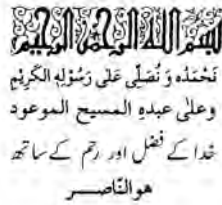 بسم اللہ الرحمٰن الرحیم
نَحْمَدُہ وَ نُصَلِّی عَلٰی رَسُوْلِهِ الْکَرِیْمِ
وعلٰی عبدہِ المسیح الموعود
خدا کے فضل اور رحم کے ساتھ
ھو النّاصــر